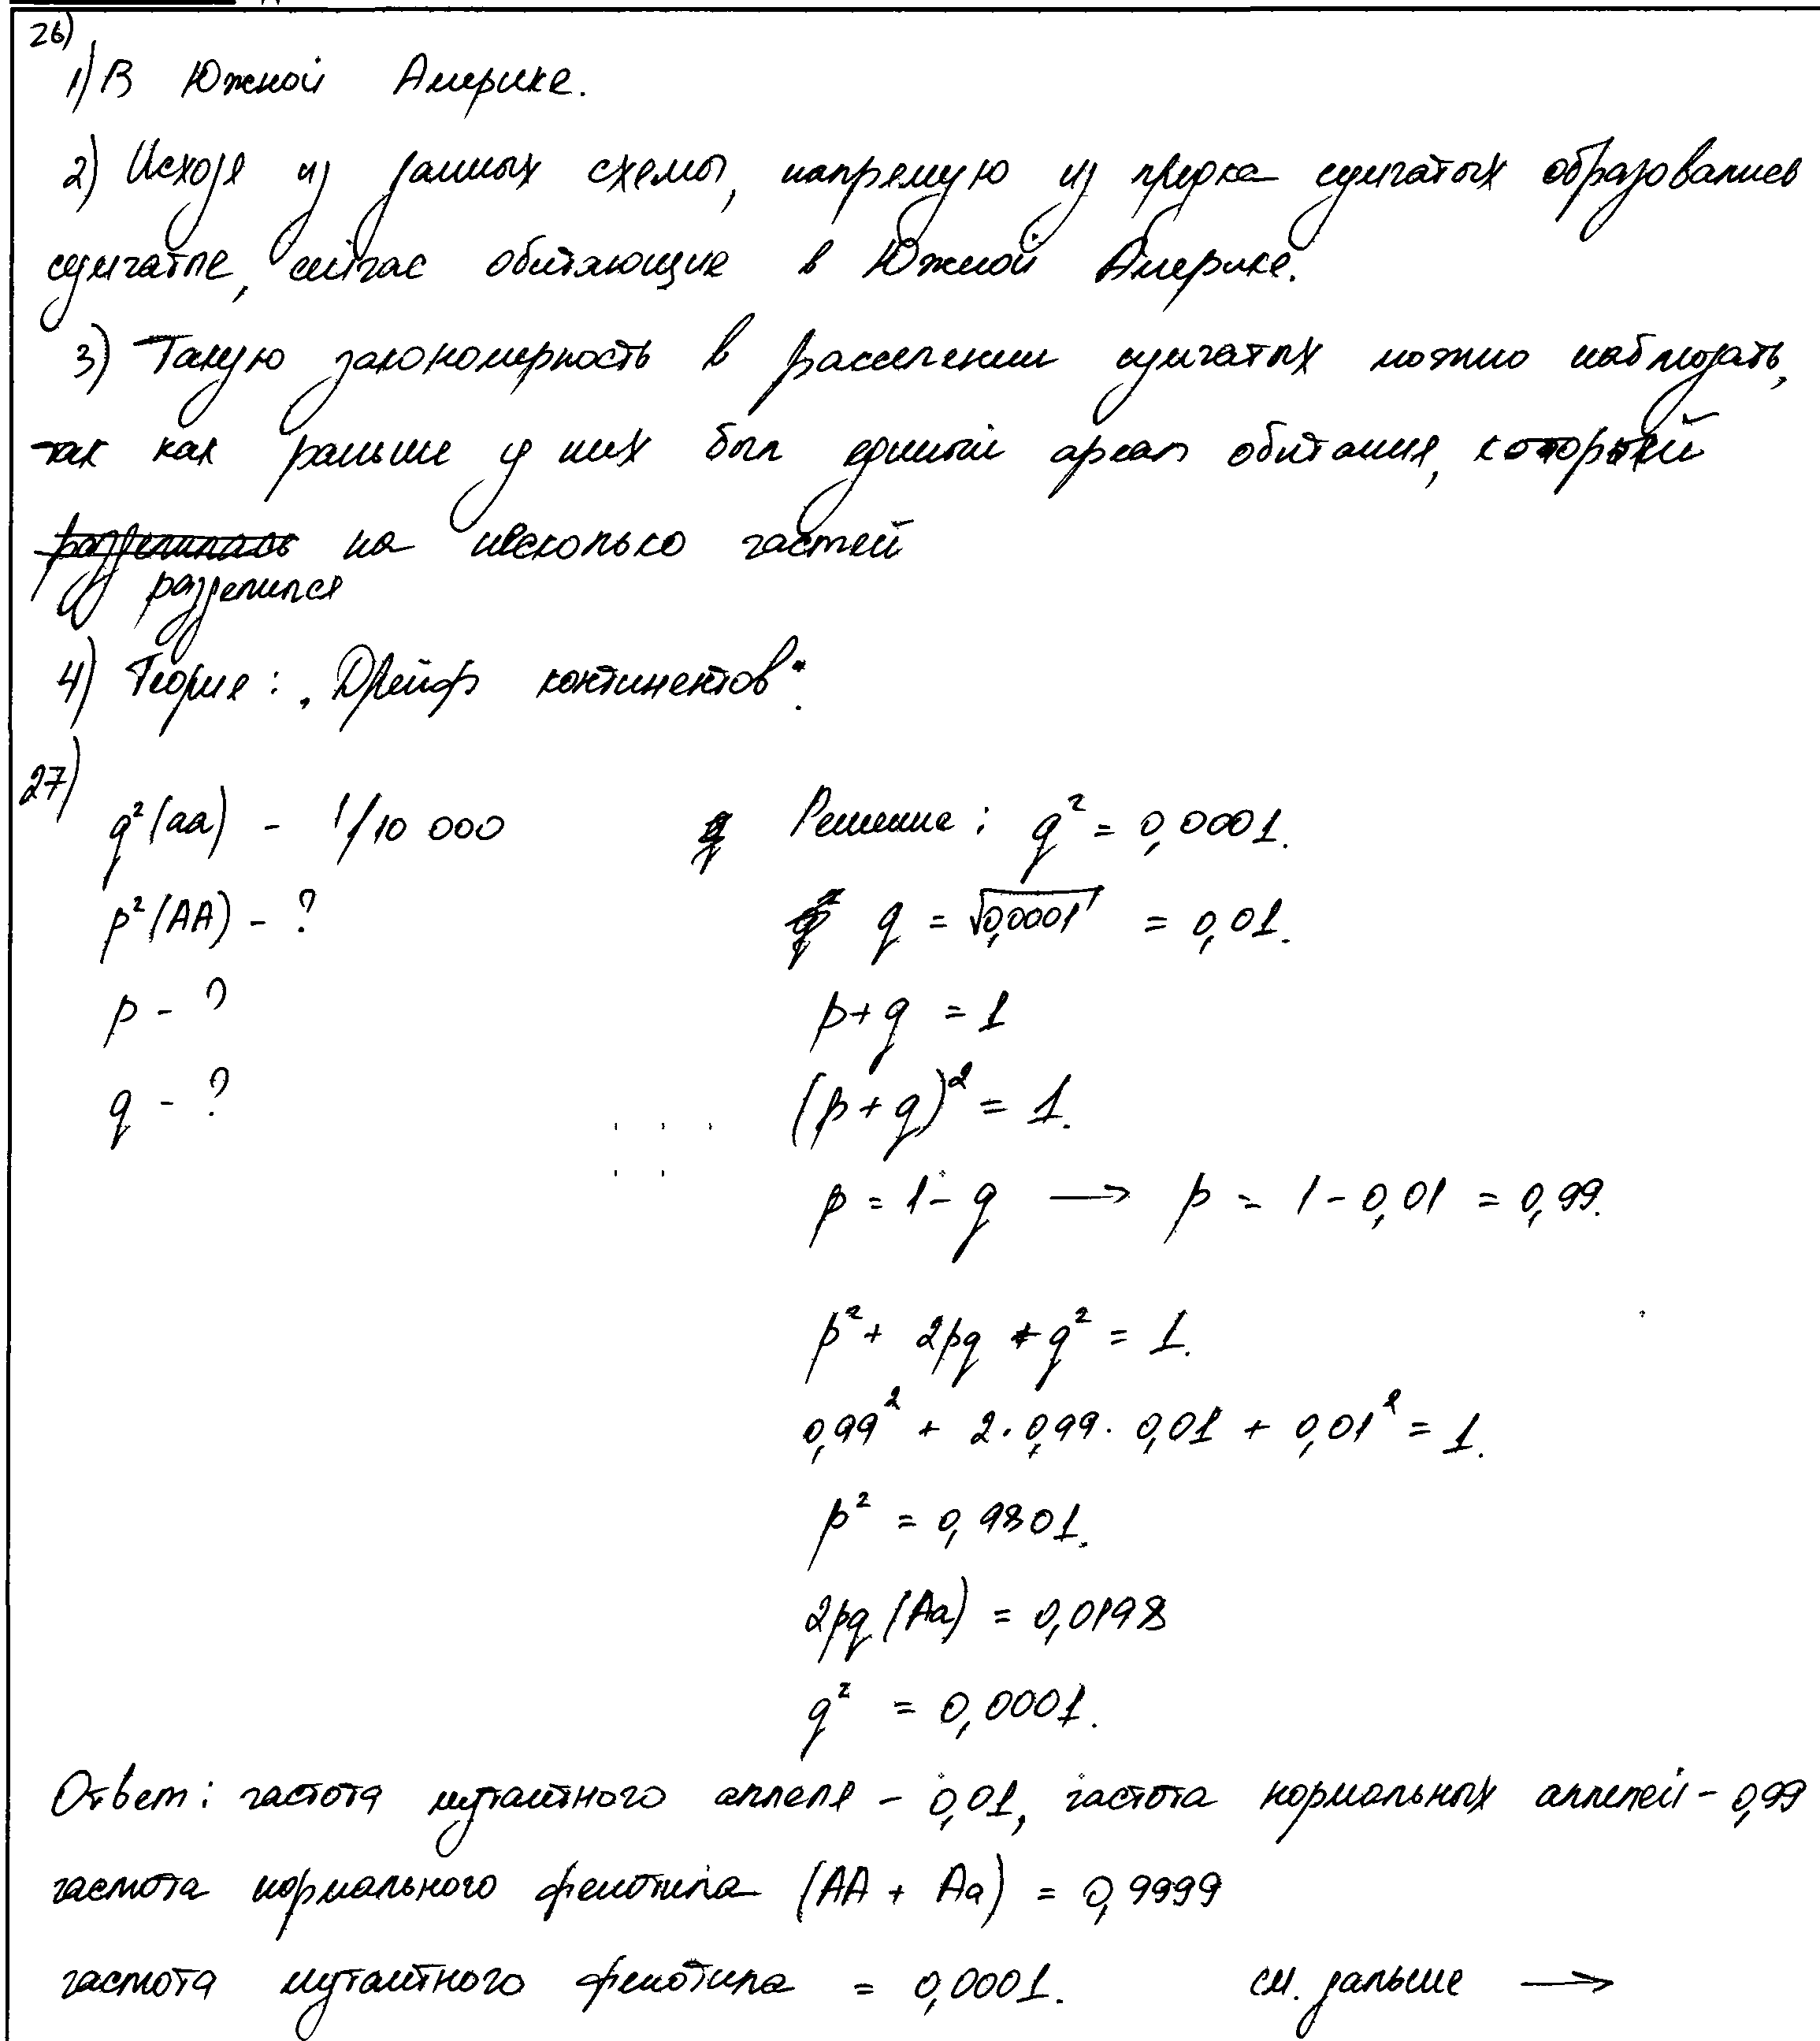 26)
1) В Южной Америке.
2) Исходя из данных схемы, напрямую из предка сумчатых образовались
сумчатые, сейчас обитающие в Южной Америке.
3) Такую закономерность в расселении сумчатых можно наблюдать,
так как раньше у них был единый ареал обитания, который
разделилась на несколько частей
разделился
4) Теория: „Дрейф континентов“.
27)
q²(aa) - 1/10 000 Решение: q² = 0,0001.
p²(AA) - ? q = √0,0001 = 0,01.
p - ? p+q = 1
q - ? (p+q)² = 1.
p = 1-q → p = 1-0,01 = 0,99.
p² + 2pq + q² = 1.
0,99² + 2·0,99·0,01 + 0,01² = 1.
p² = 0,9801.
2pq (Aa) = 0,0198
q² = 0,0001.
Ответ: частота мутантного аллеля - 0,01, частота нормальных аллелей - 0,99
частота нормального фенотипа (AA + Aa) = 0,9999
частота мутантного фенотипа = 0,0001. см. дальше →